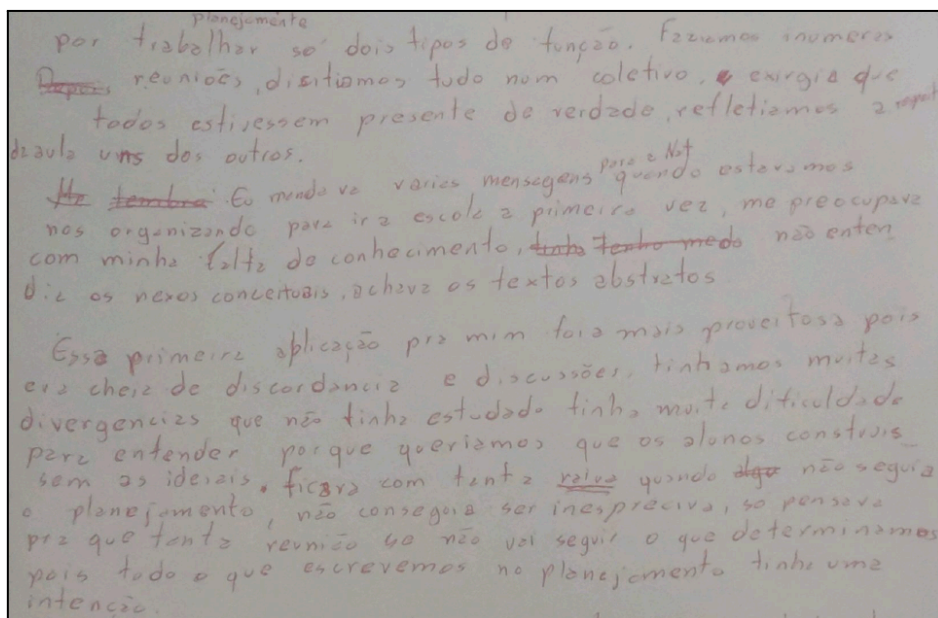 planejamente
por trabalhar so dois tipos de função. Faziamos inumeras
Depois reuniões, disitiamos tudo num coletivo, e exirgia que
todos estivessem presente de verdade, refletiamos a
da aula uns dos outros.
para a Nat
Me lembra Eu mandava varias mensagens quando estavamos
nos organizando para ir a escola a primeira vez, me preocupava
com minha falta de conhecimento, tinha tenho medo não enten
dia os nexos conceituais, achava os textos abstratos
Essa primeira aplicação pra mim foi a mais proveitosa pois
era cheia de discordancia e discussões, tinhamos muitas
divergencias que não tinha estudado tinha muita dificuldade
para entender porque queriamos que os alunos construis
sem as ideiais. ficava com tanta raiva quando algo não seguia
o planejamento, não conseguia ser inespreciva, so pensava
pra que tanta reunião se não vai seguir o que determinamos
pois todo o que escrevemos no planejamento tinha uma
intenção.